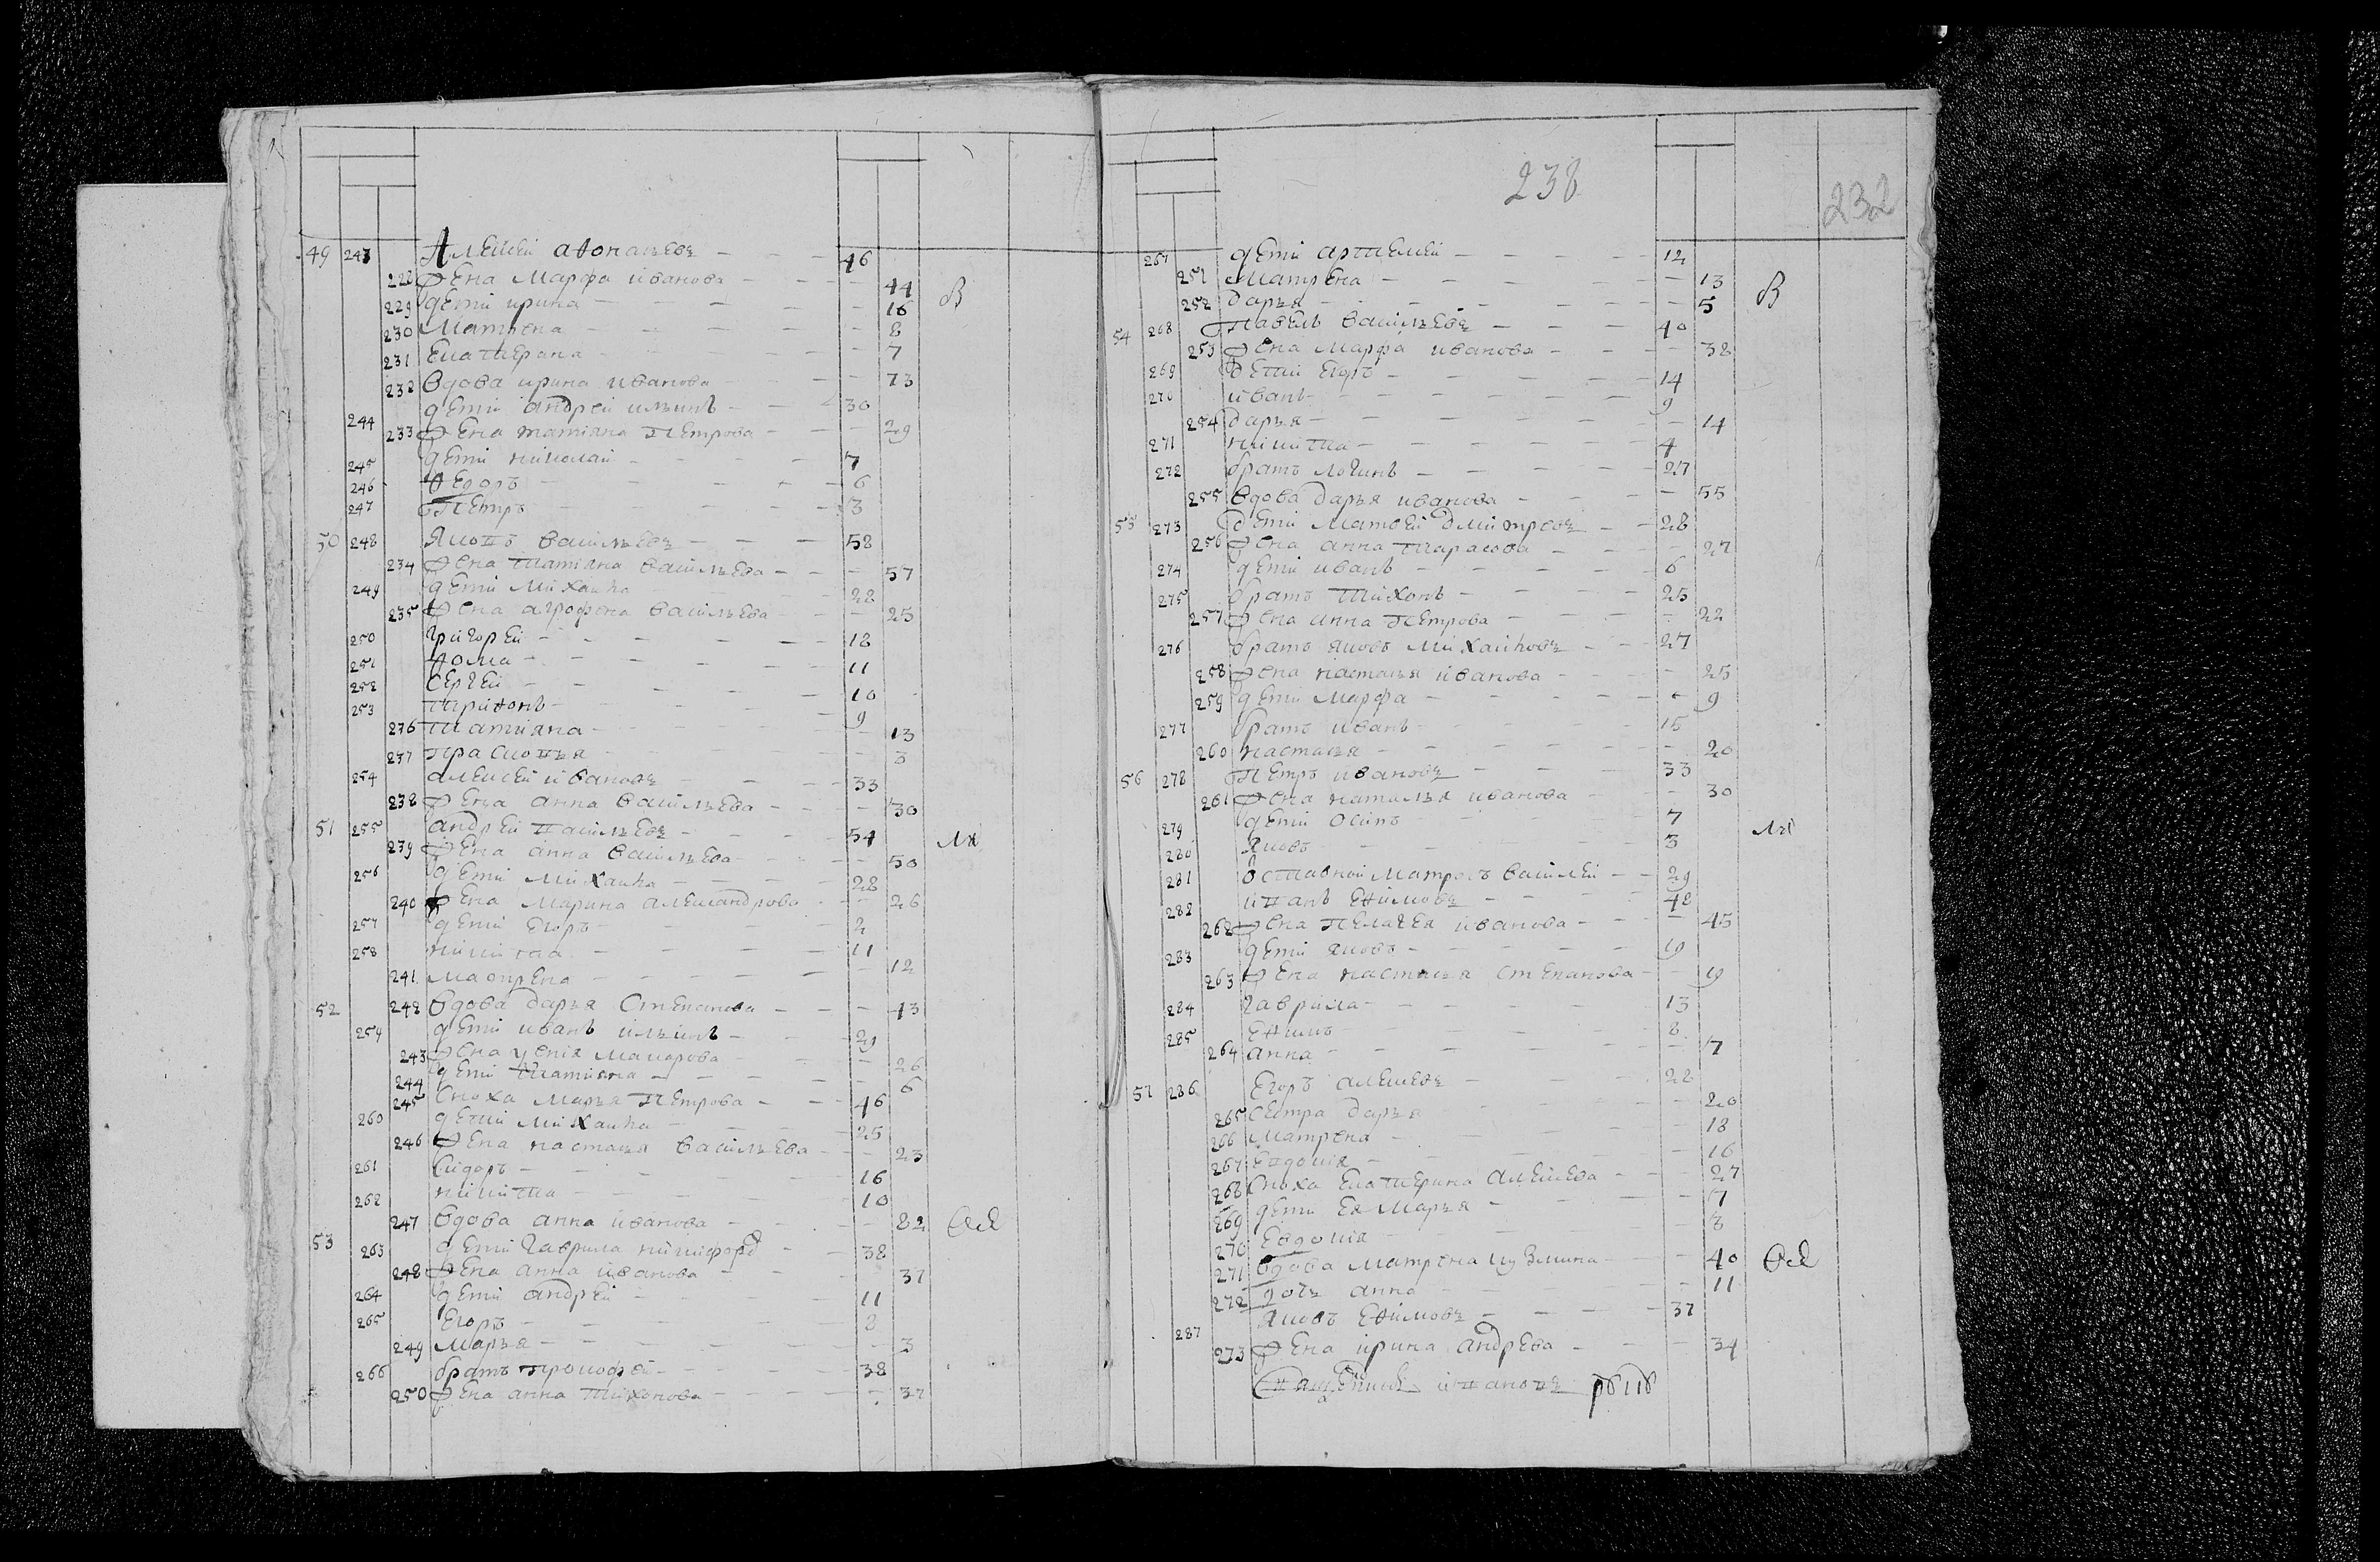 49 243 Алеѯей аѳонасьевъ — — — 46
228 Жена Марфа иванова — — — 44 В
229 дети ирина — — — 16
230 Матрена — — — 8
231 Екатерина — — — 7
232 Вдова ирина иванова — — 73
244 дети андрей ильинъ — — 30
233 Жена татияна Петрова — — — 29
245 дети николай — — — 7
246 Ѳедоръ — — — 6
247 Петръ — — — 3
50 248 васильевъ — — — 58
234 Жена татияна васильева — — — 57
249 дети Михаила 22
235 Жена агрофена васильева — — — 25
250 григорей — — — 18
251 Ѳома — — — 11
252 Сергей — — — 10
253 триѳонъ — — — 9
276 татияна — — — 13
237 Прасковья — — — 3
254 алексей ивановъ — — — 33
238 Жена анна васильева — — — 30
51 255 андрей васильевъ — — — 54
239 Жена анна васильева — — — 50
256 дети Михаила — — — 28
240 Жена Марина александрова — — 26
257 дети Егоръ — — — 2
258 никита — — — 11
241 Маотрена — — — 12
52 242 Вдова дарья Степанова — — — 43
259 дети иванъ ильинъ — — — 29
243 Жена Макарова — — — 26
244 дети татияна — — — 6
245 Сноха Марья Петрова — — — 46
260 дети Михаила — — — 25
246 Жена настасья васильева — — — 23
261 Сидоръ — — — 16
262 никита — — — 10
247 Вдова анна иванова — — — 82
53 263 дети гаврила никифоро — — 38
248 Жена анна иванова — — — 37
264 дети андрей — — — 11
265 Егоръ — — — 8
249 Марья — — — 3
266 братъ Прокофей — — — 38
250 Жена анна Тихонова — — — 37
238
232
267 дети артемей — — — 12
251 Матрена — — — 13 В
252 дарья — — — 5
54 268 Павелъ васильевъ — — — 40
253 Жена марфа иванова — — — 38
269 дети Егоръ — — — 14
270 иванъ — — — 9
254 дарья — — — 14
271 никита — — — 4
272 братъ логинъ — — — 27
255 Вдова дарья иванова — — — 55
55 273 дети Матвей дмитревъ — — 28
256 Жена анна тарасова — — — 27
274 дети иванъ — — — 6
275 братъ тихонъ — — — 25
257 Жена анна Петрова — — — 22
276 братъ яковъ Михайловъ — — 27
258 Жена настасья иванова — — — 25
259 дети марфа — — — 9
277 братъ иванъ — — — 15
260 настасья — — — 20
56 278 Петръ ивановъ — — — 33
261 Жена наталья иванова — — — 30
279 дети осипъ — — — 7
280 Яковъ — — — 3
281 Матросъ василей — — 29
282 иванъ Еѳимовъ — — — 48
262 Жена Пелагея иванова — — — 45
283 дети яковъ — — — 19
263 Жена настасья степанова — — 19
284 гаврила — — — 13
285 Еѳимъ — — — 8
264 анна — — — 7
57 286 Егоръ алексевъ — — — 22
265 Сестра дарья — — — 20
266 Матрена — — — 18
267 Евдокия — — — 16
268 Сноха Екатерина алексева — — — 27
269 дети Ея Марья — — — 7
270 Евдокия — — — 3
271 Вдова матрена кузмина — — 40
272 дочь анна — — — 11
287 Яковъ Еѳимовъ — — — 37
273 Жена ирина андрева — — — 34
Священникъ